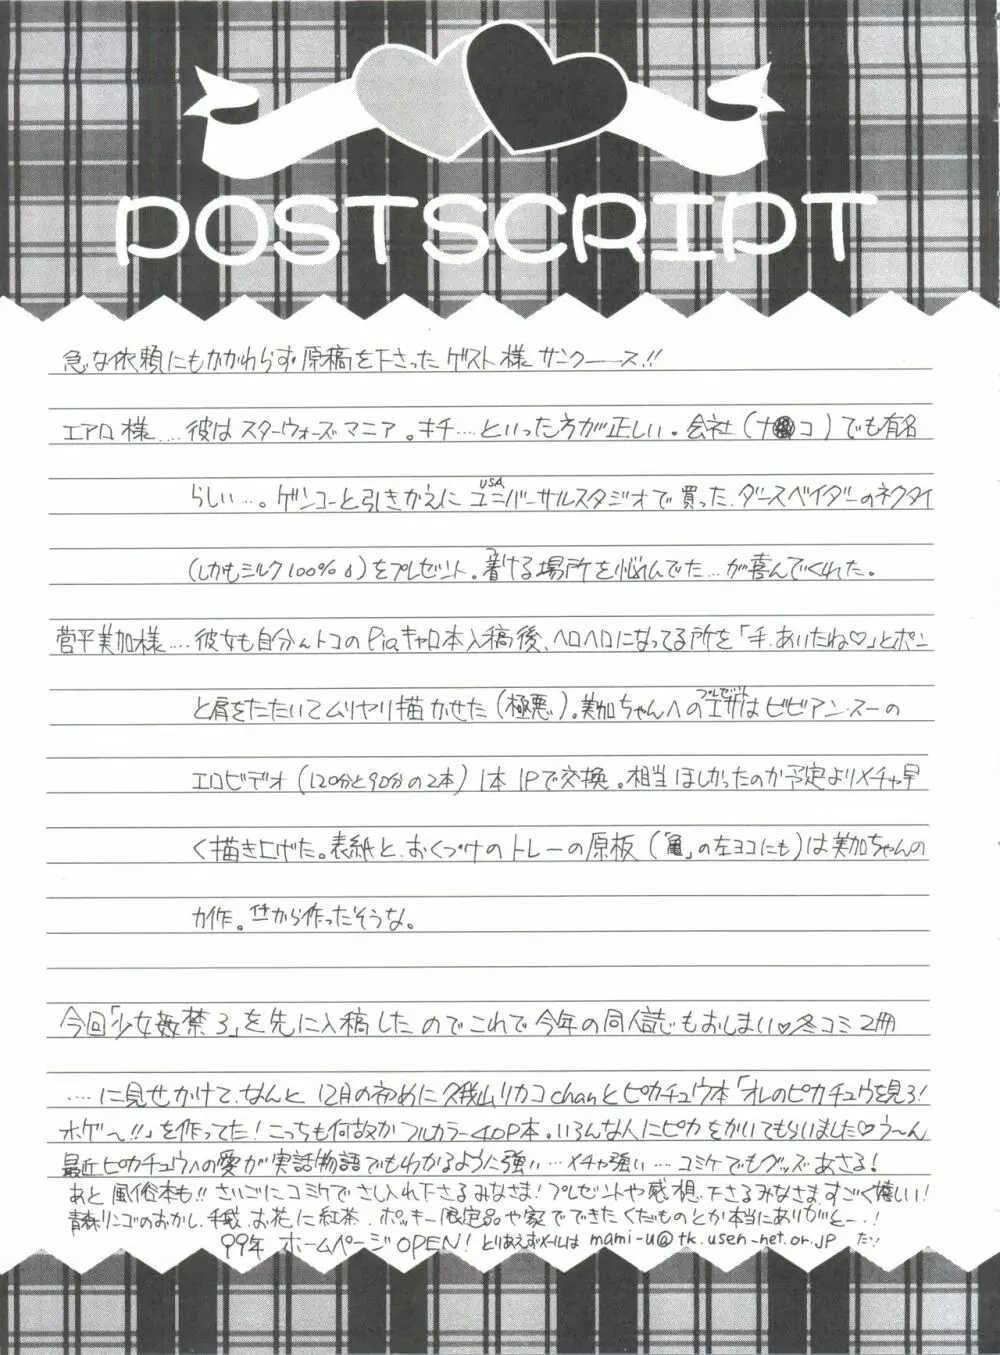 POSTSCRIPT
急な依頼にもかかわらず原稿を下さったゲスト様サンクース!!
エアロ様....彼はスターウォーズマニア。キチ....といった方が正しい。会社(ナ コ)でも有名
らしい....。ゲンコーと引きかえにUSAユニバーサルスタジオで買った.ダースベイダーのネクタイ
(しかもシルク100%)をプレゼント。着ける場所を悩んでた...が喜んでくれた。
菅平美加様....彼女も自分んトコのPiaキャロ本入稿後、ヘロヘロになってる所を「手.あいたね♡」とポン
と肩をたたいてムリヤリ描かせた(極悪)。美加ちゃんへのエサ(プレゼント)はビビアン.スーの
エロビデオ(120分と90分の2本)1本1Pで交換。相当ほしかったのか予定よりメチャ早
く描き上げた。表紙と.おくづけのトレーの原板(「亀」の左ヨコにも)は美加ちゃんの
力作。 から作ったそうな。
今回「少女姦禁3」を先に入稿したのでこれで今年の同人誌もおしまい♡冬コミ2冊
....に見せかけて.なんと12月の初めに久我山リカコchanとピカチュウ本「オレのピカチュウを見ろ!
ホゲ〜!!」を作ってた!こっちも何故かフルカラー40P本。いろんな人にピカをかいてもらいました♡う〜ん
最近ピカチュウへの愛が実話物語でもわかるように強い...メチャ強い...コミケでもグッズあさる!
あと風俗本も!!さいごにコミケでさし入れ下さるみなさま!プレゼントや感想.下さるみなさま.すごく嬉しい!
青森リンゴのおかし.手紙.お花に紅茶.ポッキー限定品や家でできたくだものとか本当にありがとー.!
99年 ホームページOPEN!とりあえずメールは mami-u@tk.usen-net.or.jp だッ!